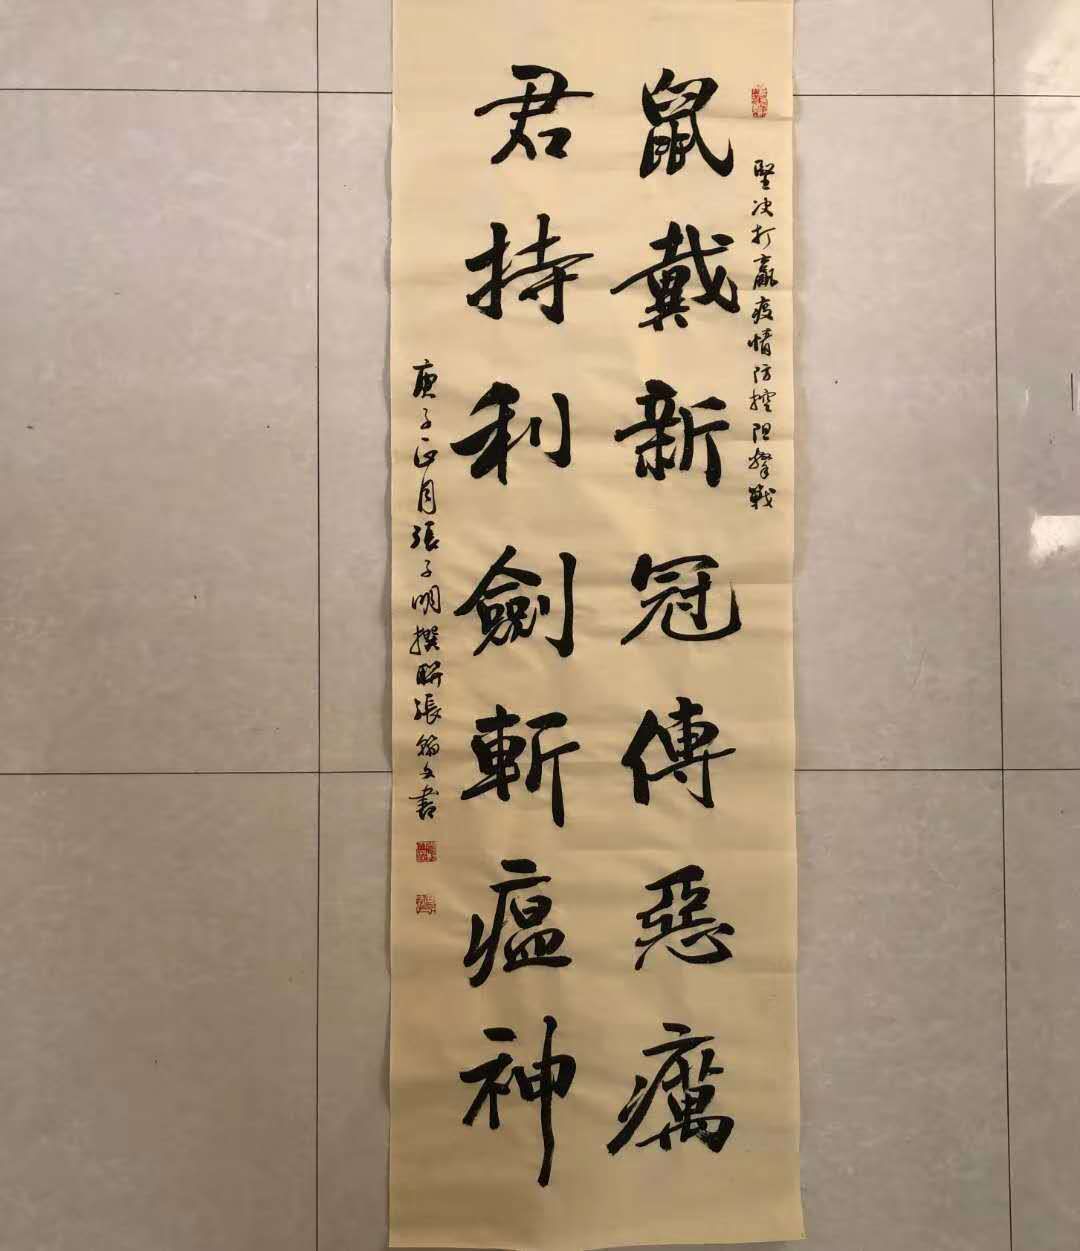 堅决打贏疫情防控阻擊戰
鼠戴新冠傳惡癘
君持利劍斬瘟神
庚子正月張子明撰聯張翰文書